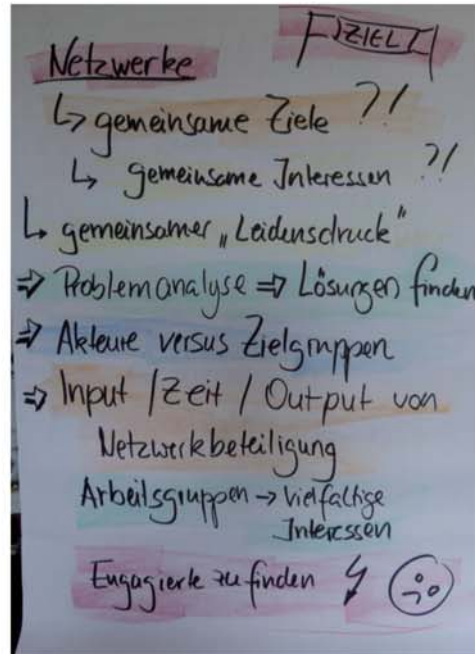 ZIEL
Netzwerke
↳ gemeinsame Ziele ?!
↳ gemeinsame Interessen ?!
↳ gemeinsamer „Leidensdruck"
⇒ Problemanalyse ⇒ Lösungen finden
⇒ Akteure versus Zielgruppen
⇒ Input / Zeit / Output von
Netzwerkbeteiligung
Arbeitsgruppen → vielfältige
Interessen
Engagierte zu finden